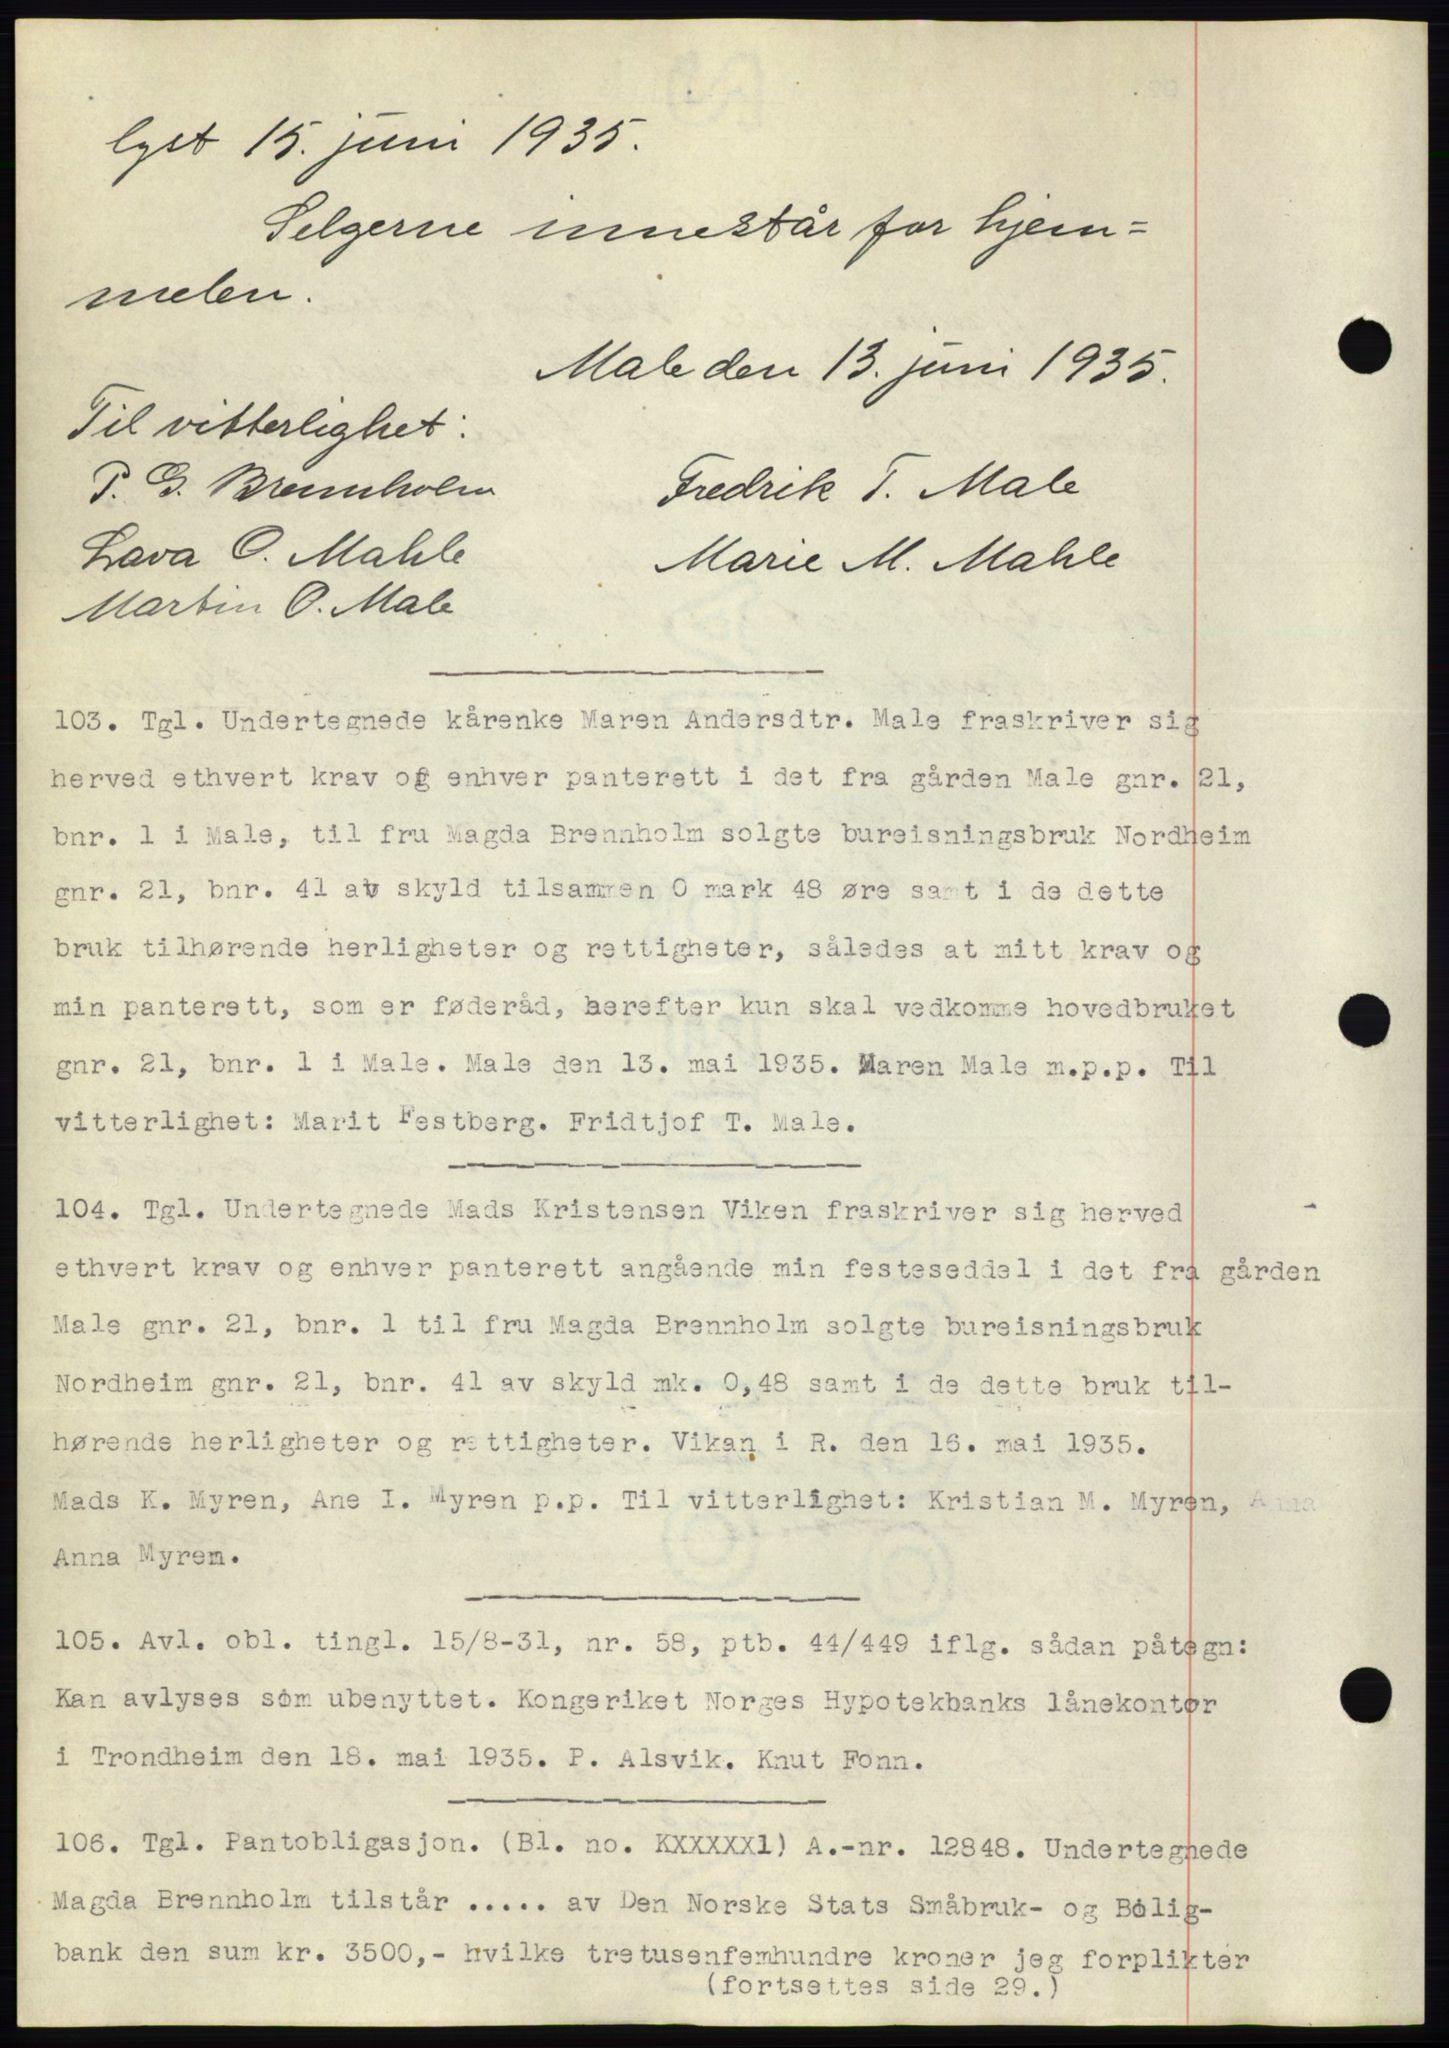 lyst 15. juni 1935.
Selgerne innestår for hjem=
melen.
Male den 13. juni 1935.
Til vitterlighet:
P. G. Brennholm Fredrik T. Male
Lava O. Mahle Marie M. Mahle
Martin O. Male
103. Tgl. Undertegnede kårenke Maren Andersdtr. Male fraskriver sig
herved ethvert krav og enhver panterett i det fra gården Male gnr. 21,
bnr. 1 i Male, til fru Magda Brennholm solgte bureisningsbruk Nordheim
gnr. 21, bnr. 41 av skyld tilsammen 0 mark 48 øre samt i de dette
bruk tilhørende herligheter og rettigheter, således at mitt krav og
min panterett, som er føderåd, herefter kun skal vedkomme hovedbruket
gnr. 21, bnr. 1 i Male. Male den 13. mai 1935. Maren Male m.p.p. Til
vitterlighet: Marit Festberg. Fridtjof T. Male.
104. Tgl. Undertegnede Mads Kristensen Viken fraskriver sig herved
ethvert krav og enhver panterett angående min festeseddel i det fra gården
Male gnr. 21, bnr. 1 til fru Magda Brennholm solgte bureisningsbruk
Nordheim gnr. 21, bnr. 41 av skyld mk. 0,48 samt i de dette bruk til-
hørende herligheter og rettigheter. Vikan i R. den 16. mai 1935.
Mads K. Myren, Ane I. Myren p.p. Til vitterlighet: Kristian M. Myren, Anna
Anna Myrem.
105. Avl. obl. tingl. 15/8-31, nr. 58, ptb. 44/449 iflg. sådan påtegn:
Kan avlyses som ubenyttet. Kongeriket Norges Hypotekbanks lånekontor
i Trondheim den 18. mai 1935. P. Alsvik. Knut Fonn.
106. Tgl. Pantobligasjon. (Bl. no. KXXXXX1) A.-nr. 12848. Undertegnede
Magda Brennholm tilstår ..... av Den Norske Stats Småbruk- og Bolig-
bank den sum kr. 3500,- hvilke tretusenfemhundre kroner jeg forplikter
(fortsettes side 29.)